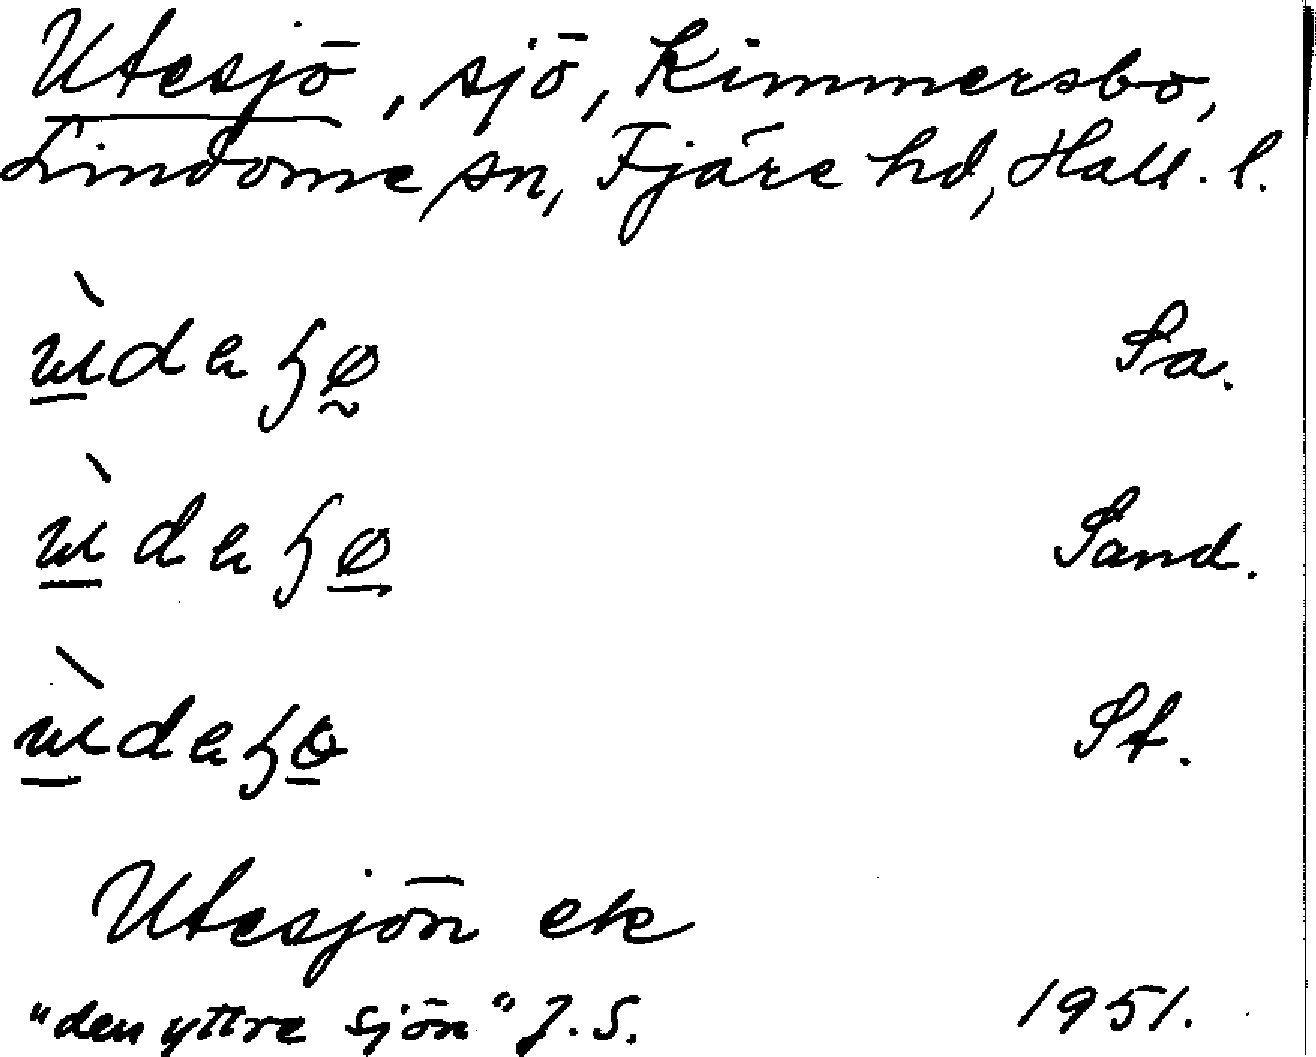 Utesjö, sjö, Kimmersbo,
Lindome sn, Fjäre hd, Hall. l.
Sa.
Sand.
St.
Utesjön ek
"den yttre sjön" J. S. 1951.